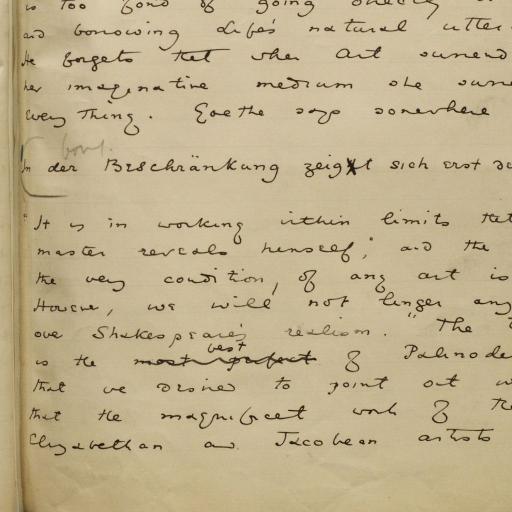 is too fond of going directly
and borrowing Life's natural utter
He forgets that when Art surrend
her imaginative medium she surre
every thing. Goethe says somewhere
bourg.
In der Beschränkung zeigt sich erst de
"It is in working within limits that
master reveals himself," and the
the very condition, of any art is
However, we will not linger any
over Shakespeare's realism. "The
best
is the most perfect of Palinode
that we desired to point out w
that the magnificent work of the
Elizabethan and Jacobean artists